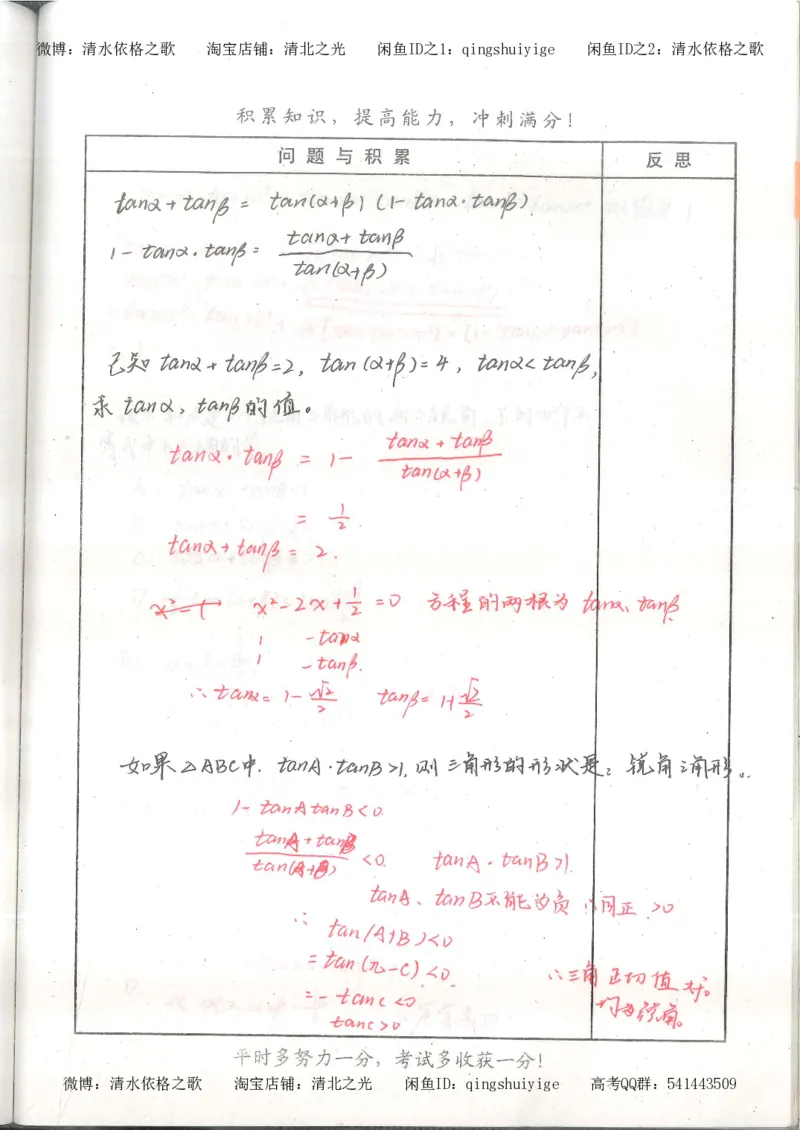 微博：清水依格之歌 淘宝店铺：清北之光 闲鱼ID之1：qingshuiyige 闲鱼ID之2：清水依格之歌
积累知识，提高能力，冲刺满分！
问题与积累 反思
tanα+tanβ = tan(α+β)(1-tanα·tanβ)
1-tanα·tanβ = \frac{tanα+tanβ}{tan(α+β)}
已知 tanα+tanβ=2, tan(α+β)=4, tanα<tanβ,
求 tanα, tanβ的值。
tanα·tanβ = 1- \frac{tanα+tanβ}{tan(α+β)}
= \frac{1}{2}
tanα+tanβ = 2.
x²-2x+\frac{1}{2}=0 方程的两根为 tanα、tanβ
1 -tanα
1 -tanβ.
∴tanα=1-\frac{√2}{2} tanβ=1+\frac{√2}{2}
如果△ABC中, tanA·tanB>1, 则三角形的形状是: 锐角三角形。
1-tanAtanB<0.
\frac{tanA+tanB}{tan(A+B)}<0. tanA·tanB>1.
tanA、tanB不能为负 ∴同正 >0
∴ tan(A+B)<0
=tan(π-C)<0.
=-tanc<0
tanc>0
∴三角正切值
均为锐角。
平时多努力一分，考试多收获一分！
微博：清水依格之歌 淘宝店铺：清北之光 闲鱼ID：qingshuiyige 高考QQ群：541443509